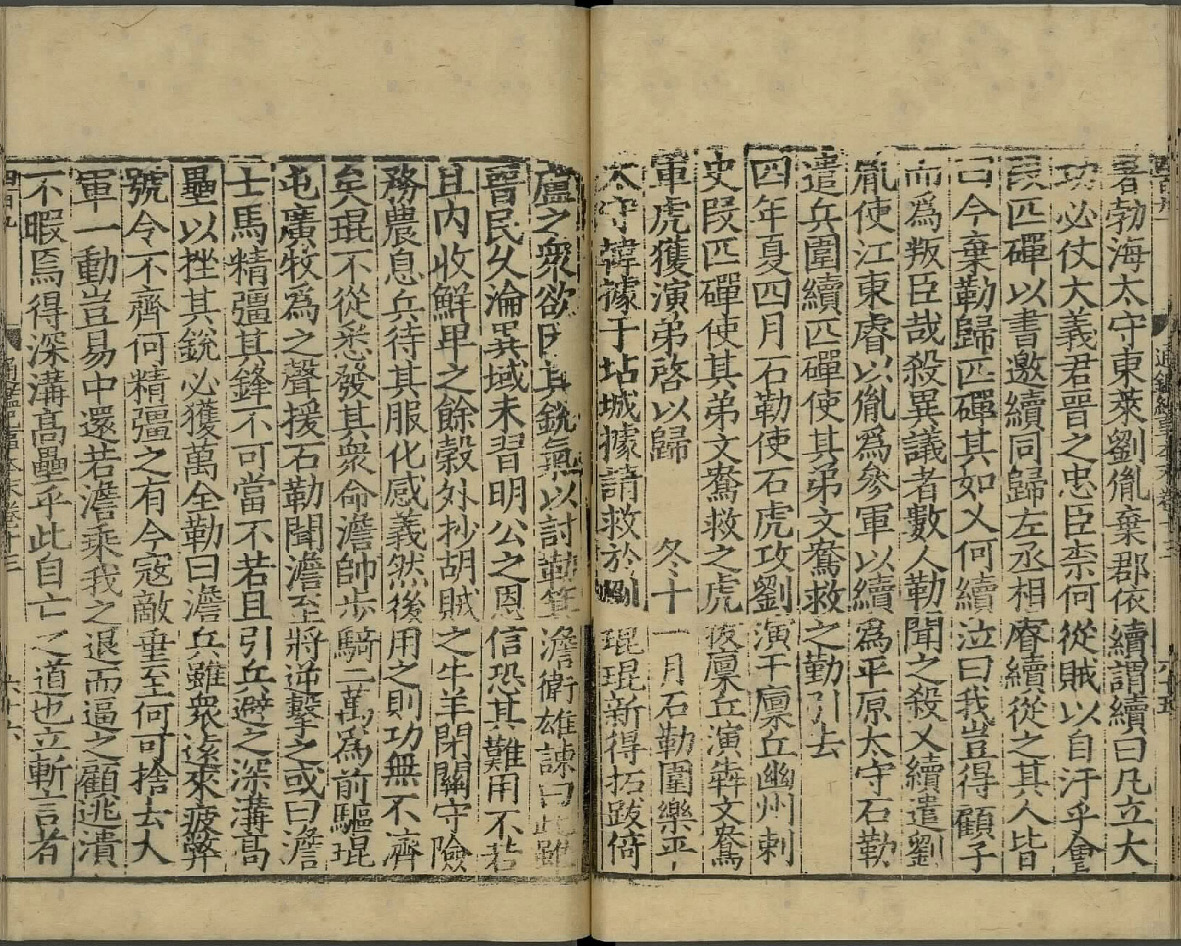 吾勃海太守東萊劉胤棄郡依續謂續曰凡立大
功必仗大義君晉之忠臣柰何從賊以自汙乎會
段匹磾以書邀續同歸左丞相睿續從之其人皆
曰今棄勒歸匹磾其如乂何續泣曰我豈得顧子
而爲叛臣哉殺異議者數人勒聞之殺乂續遣劉
胤使江東睿以胤爲參軍以續爲平原太守石勒
遣兵圍續匹磾使其弟文鴦救之勒引去
四年夏四月石勒使石虎攻劉演于廪丘幽州刺
史段匹磾使其弟文鴦救之虎㧞廪丘演犇文鴦
軍虎獲演弟啓以歸　冬十一月石勒圍樂平
太守韓據于坫城據請救於劉琨琨新得拓跋猗
盧之衆欲因其銳氣以討勒箕澹衛雄諫曰此雖
晉民久淪異域未習明公之恩信恐其難用不若
且内收鮮卑之餘穀外抄胡賊之牛羊閉關守險
務農息兵待其服化感義然後用之則功無不濟
矣琨不從悉發其衆命澹帥步騎二萬爲前驅琨
屯廣牧爲之聲援石勒聞澹至將逆擊之或曰澹
士馬精彊其鋒不可當不若且引兵避之深溝高
壘以挫其銳必獲萬全勒曰澹兵雖衆遠來疲弊
號令不齊何精彊之有今寇敵垂至何可捨去大
軍一動豈易中還若澹乘我之退而逼之顧逃潰
不暇焉得深溝高壘乎此自亡之道也立斬言者